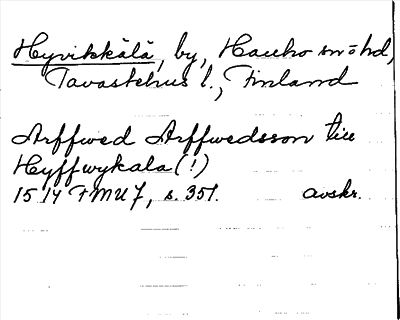 Hyvikkälä, by, Hauho snöhd,
Tavastehus l., Finland
Arffwed Arffwedsson till
Hyffwykala (!)
1514 FMU 7, s. 351. avskr.